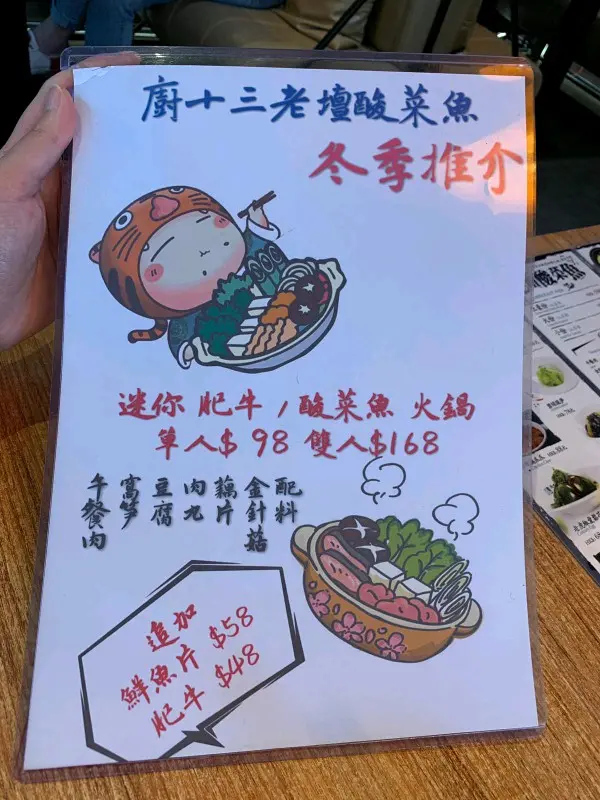 廚十三老壇酸菜魚
冬季推介
迷你 肥牛 / 酸菜魚 火鍋
單人$ 98 雙人$168
配料
金針菇
藕片
肉丸
豆腐
窩筍
午餐肉
追加
鮮魚片 $58
肥牛 $48
酸菜魚